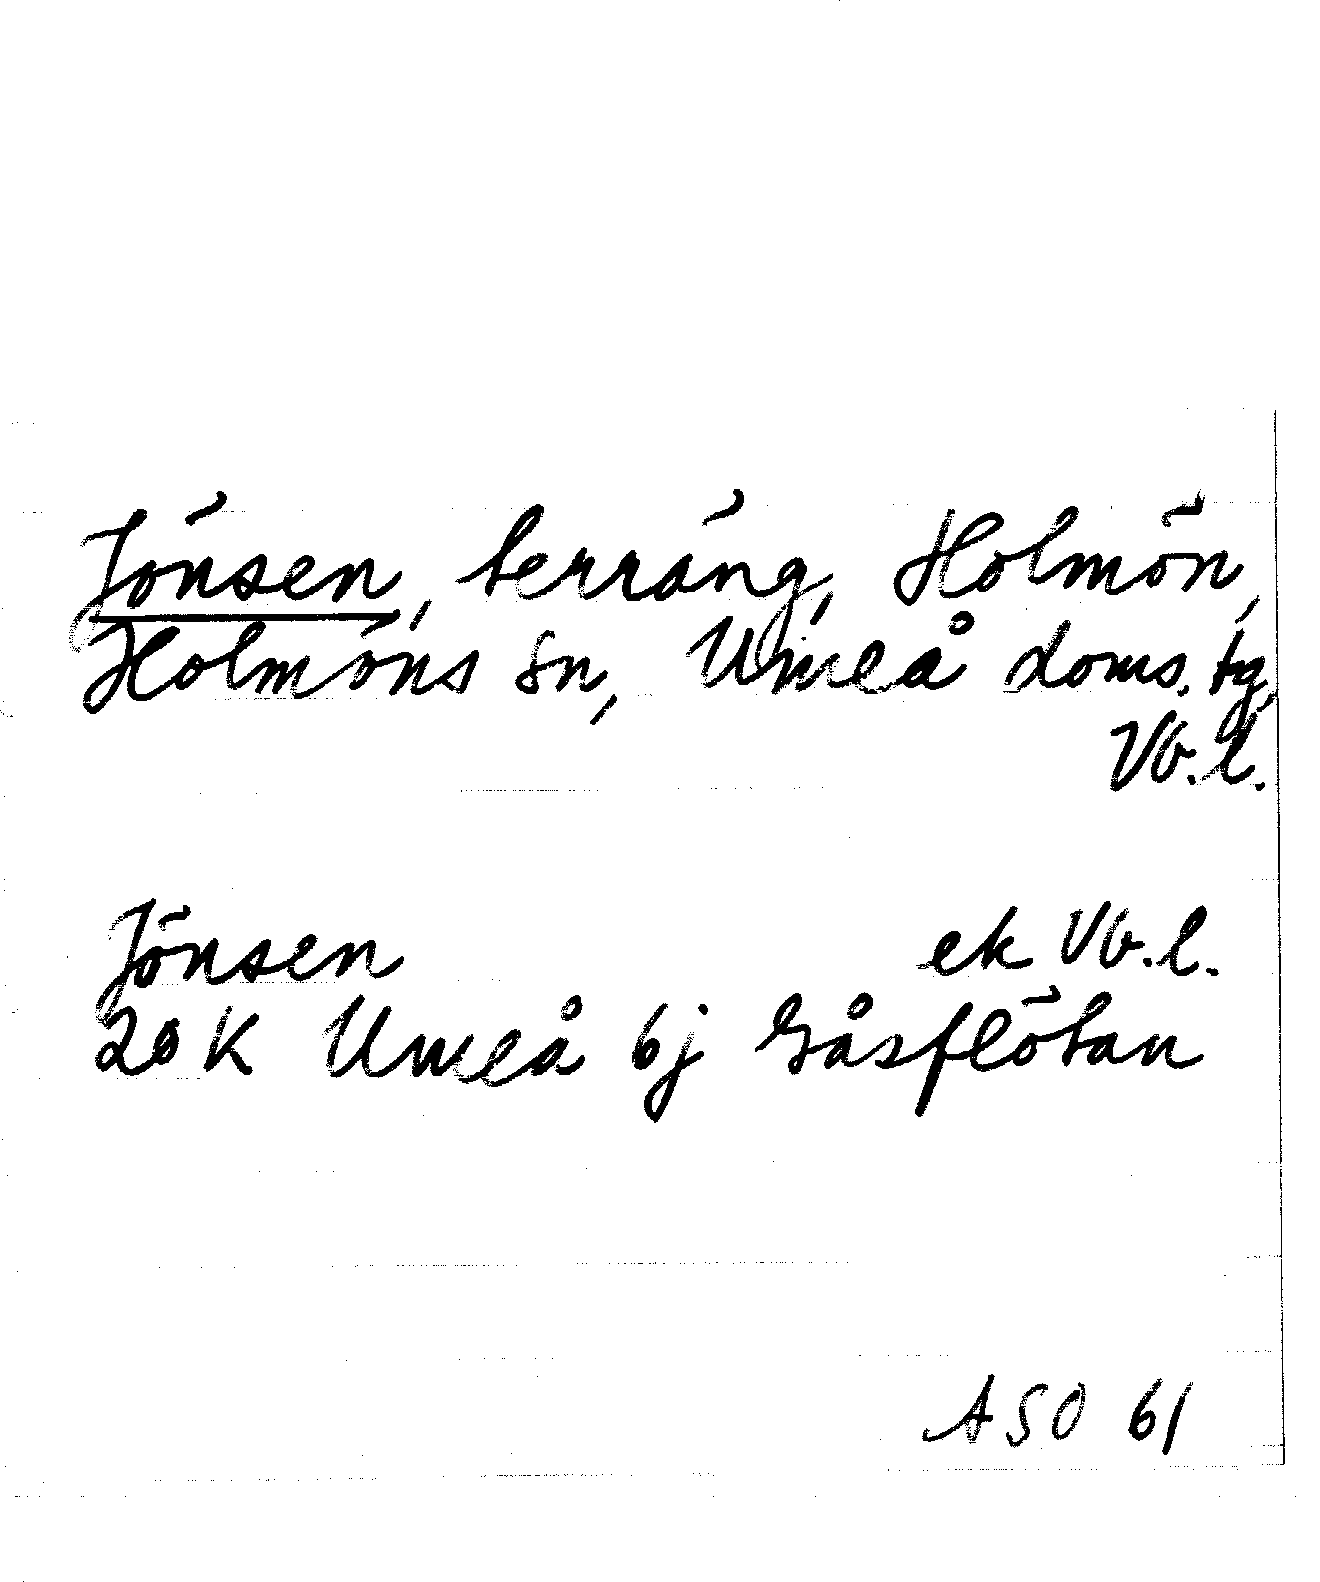 Jönsen, terräng, Holmön,
Holmöns sn, Umeå doms. tg,
Vb.l.
Jönsen ek Vb.l.
20 K Umeå 6j Gåsflötan
ASO 61